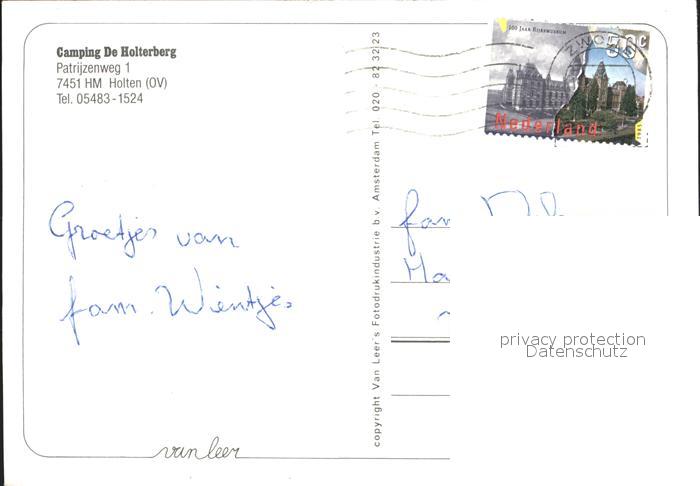 Camping De Holterberg
Patrijzenweg 1
7451 HM Holten (OV)
Tel. 05483-1524
100 JAAR RIJKSMUSEUM
55 c
ZWO
Nederland
1985
Groetjes van
fam. Wientjes
fam
Ha
copyright Van Leer's Fotodrukindustrie b.v. Amsterdam Tel. 020 - 82 32 23
van leer
privacy protection
Datenschutz